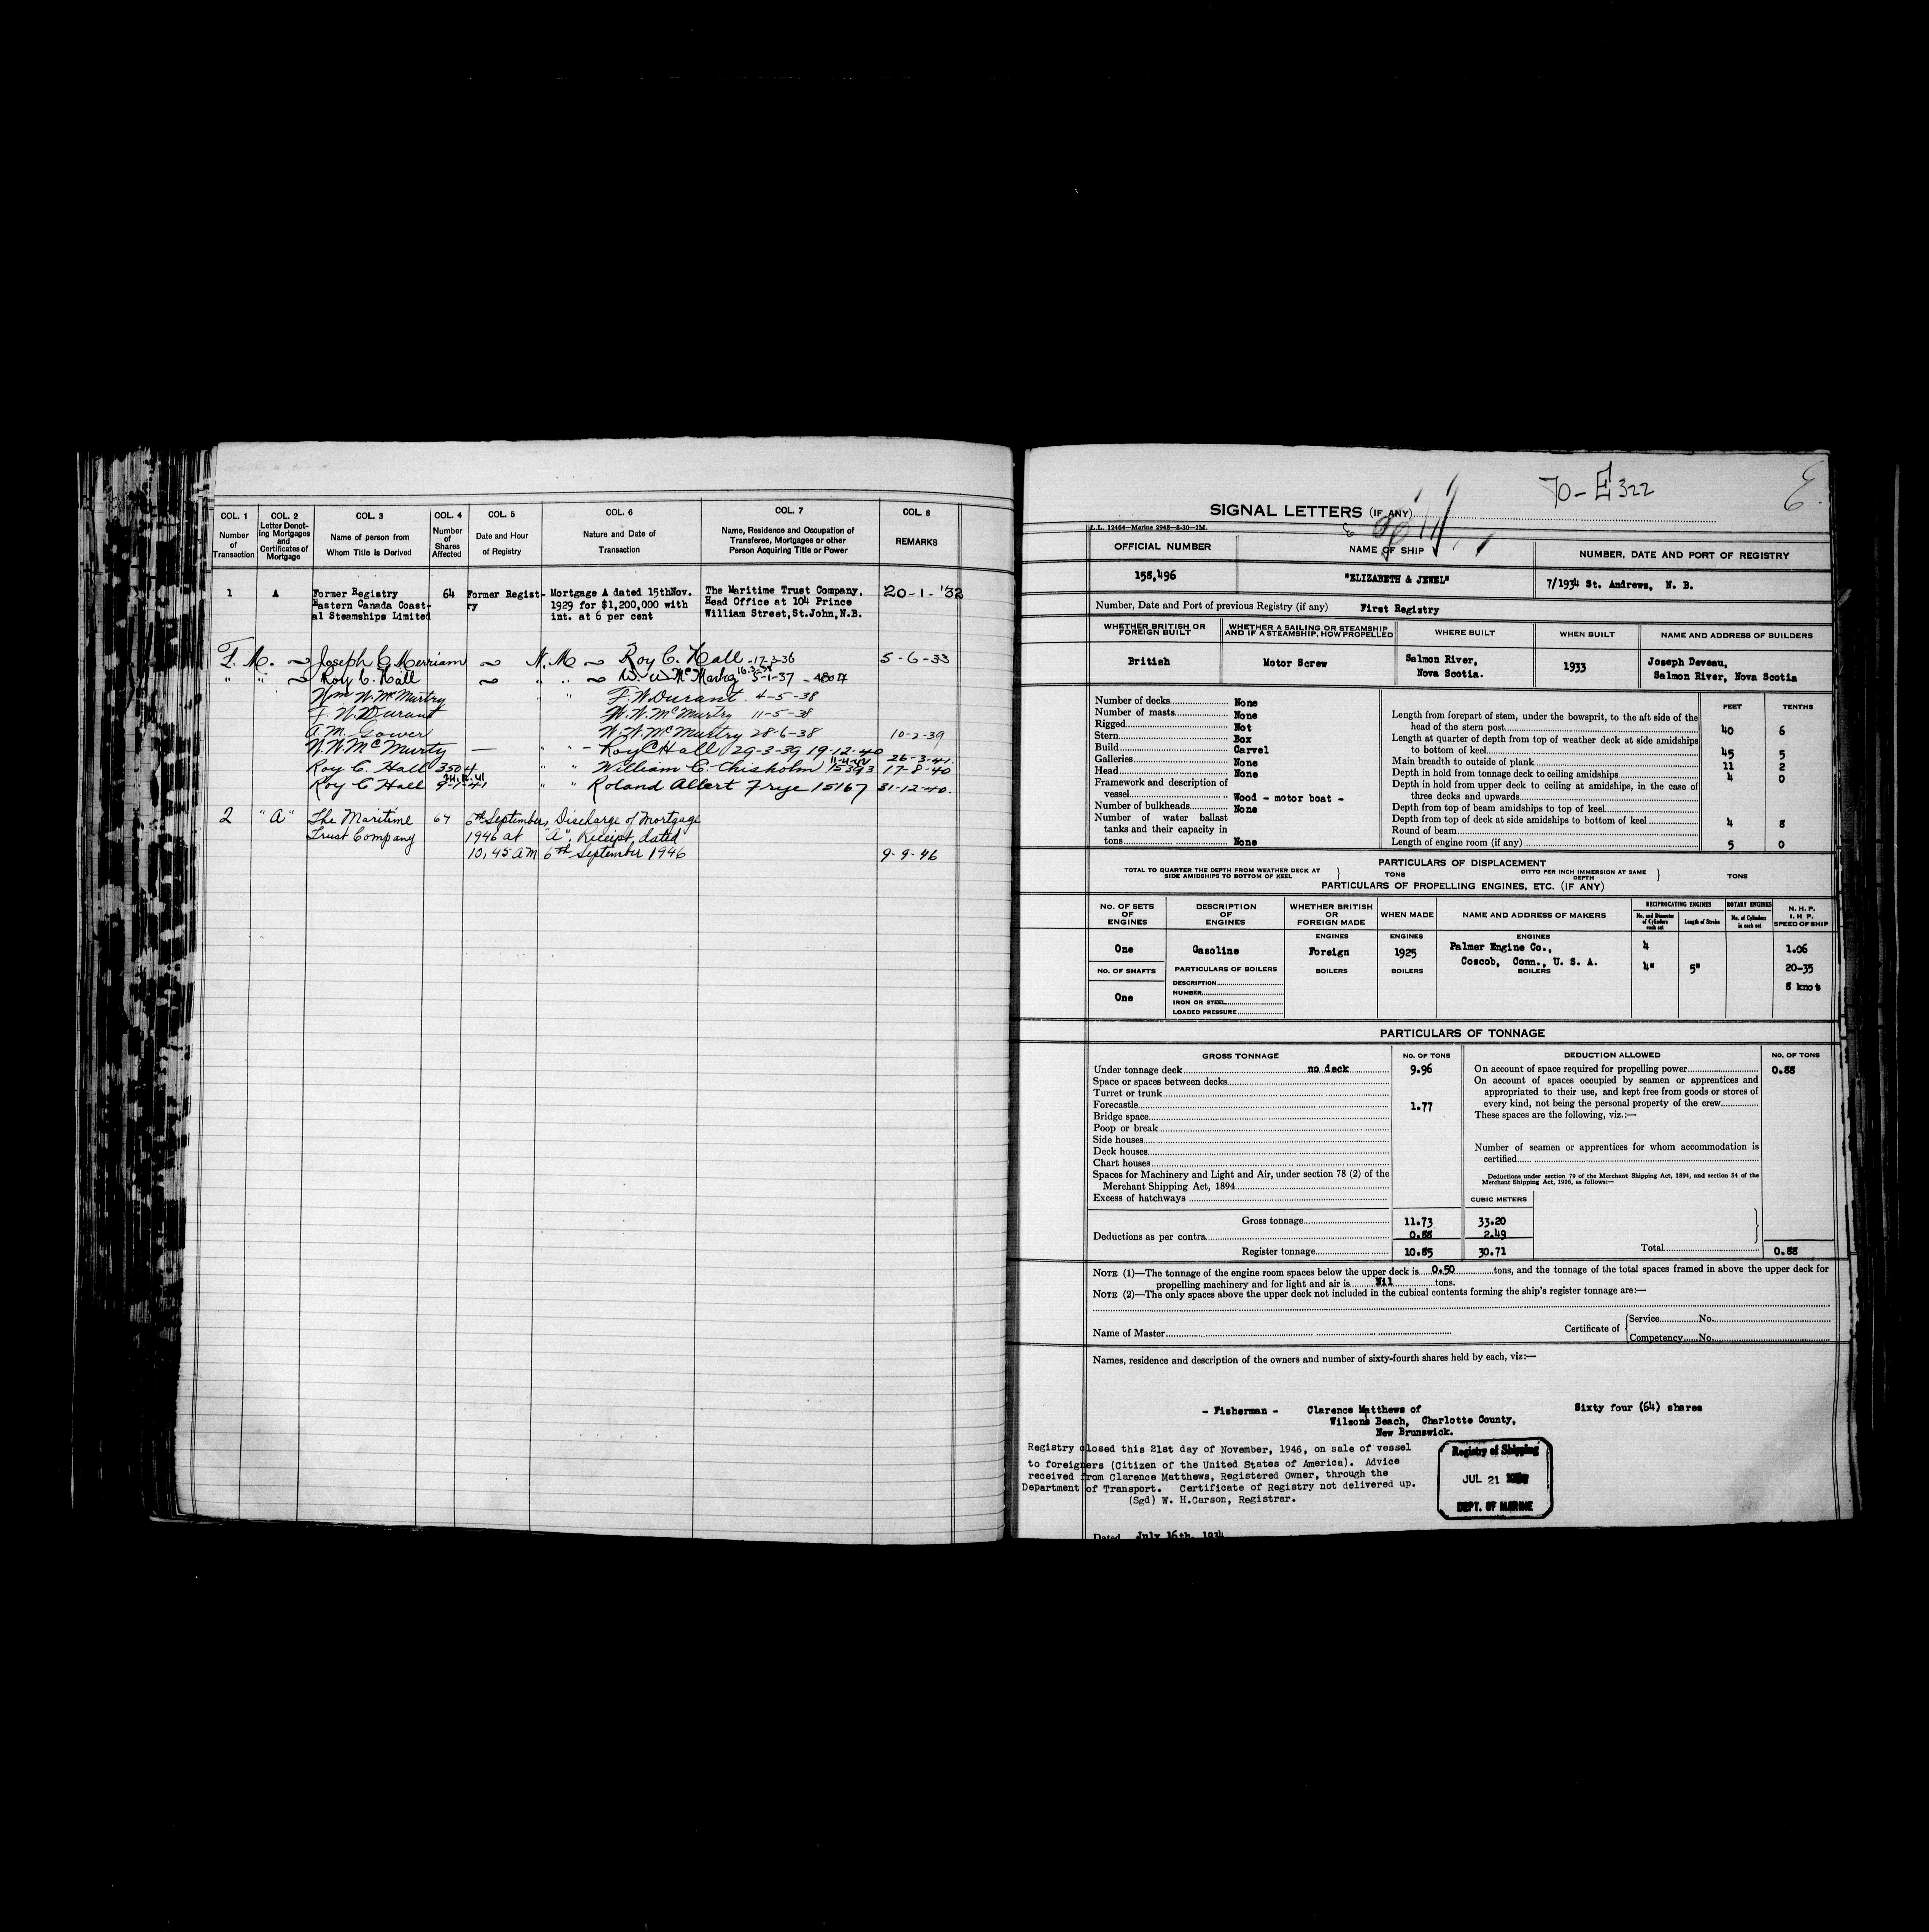 COL. 1 COL. 2 COL. 3 COL. 4 COL. 5 COL. 6 COL. 7 COL. 8
Number of Transaction
Letter Denoting Mortgages and Certificates of Mortgage
Name of person from Whom Title is Derived
Number of Shares Affected
Date and Hour of Registry
Nature and Date of Transaction
Name, Residence and Occupation of Transferee, Mortgagee or other Person Acquiring Title or Power
REMARKS
1 A Former Registry 64 Former Regist- Mortgage A dated 15thNov. The Maritime Trust Company, 20-1-'32
Eastern Canada Coast- ry 1929 for $1,200,000 with Head Office at 104 Prince
al Steamships Limited int. at 6 per cent William Street,St.John,N.B.
F. M. Joseph C. Merriam N. M. Roy C. Hall -17-3-36 5-6-33
" " Roy C. Hall " " W. W. McMurtry 5-1-37
Wm W. McMurtry " F. W. Durant. 4-5-38
F. W. Durant W. W. McMurtry 11-5-38
A. M. Gower W. W. McMurtry 28-6-38 10-2-39
W. W. McMurty — " " - Roy C Hall 29-3-39 19-12-40
26-3-41.
Roy C. Hall 3504 " " William C. Chisholm 15393 17-8-40
Roy C Hall 9-1-41 " " Roland Albert Frye 15167 31-12-40.
2 "A" The Maritime 64 6th September, Discharge of Mortgage
Trust Company 1946 at "A". Receipt dated
10,45 AM 6th September 1946 9-9-46
70-E322
E.
SIGNAL LETTERS (IF ANY)
L.L. 12464—Marine 2948—8-30—2M.
OFFICIAL NUMBER NAME OF SHIP NUMBER, DATE AND PORT OF REGISTRY
158,496 "ELIZABETH & JEWEL" 7/1934 St. Andrews, N. B.
Number, Date and Port of previous Registry (if any) First Registry
WHETHER BRITISH OR FOREIGN BUILT
WHETHER A SAILING OR STEAMSHIP AND IF A STEAMSHIP, HOW PROPELLED
WHERE BUILT
WHEN BUILT
NAME AND ADDRESS OF BUILDERS
British Motor Screw Salmon River, 1933 Joseph Deveau,
Nova Scotia. Salmon River, Nova Scotia
Number of decks None
Number of masts None
Rigged Not
Stern Box
Build Carvel
Galleries None
Head None
Framework and description of
vessel Wood - motor boat -
Number of bulkheads None
Number of water ballast
tanks and their capacity in
tons None
FEET TENTHS
Length from forepart of stem, under the bowsprit, to the aft side of the
head of the stern post 40 6
Length at quarter of depth from top of weather deck at side amidships
to bottom of keel 45 5
Main breadth to outside of plank 11 2
Depth in hold from tonnage deck to ceiling amidships 4 0
Depth in hold from upper deck to ceiling at amidships, in the case of
three decks and upwards
Depth from top of beam amidships to top of keel
Depth from top of deck at side amidships to bottom of keel 4 8
Round of beam
Length of engine room (if any) 5 0
PARTICULARS OF DISPLACEMENT
TOTAL TO QUARTER THE DEPTH FROM WEATHER DECK AT SIDE AMIDSHIPS TO BOTTOM OF KEEL } TONS
DITTO PER INCH IMMERSION AT SAME DEPTH } TONS
PARTICULARS OF PROPELLING ENGINES, ETC. (IF ANY)
No. OF SETS OF ENGINES
DESCRIPTION OF ENGINES
WHETHER BRITISH OR FOREIGN MADE
WHEN MADE
NAME AND ADDRESS OF MAKERS
RECIPROCATING ENGINES
No. and Diameter of Cylinders each set
Length of Stroke
ROTARY ENGINES
No. of Cylinders in each set
N. H. P.
I. H. P.
SPEED OF SHIP
ENGINES ENGINES ENGINES
One Gasoline Foreign 1925 Palmer Engine Co., 4 1.06
Coscob, Conn., U. S. A. 4" 5" 20-35
8 knots
No. OF SHAFTS PARTICULARS OF BOILERS BOILERS BOILERS BOILERS
One
DESCRIPTION
NUMBER
IRON OR STEEL
LOADED PRESSURE
PARTICULARS OF TONNAGE
GROSS TONNAGE No. OF TONS DEDUCTION ALLOWED No. OF TONS
Under tonnage deck no deck 9.96
Space or spaces between decks
Turret or trunk
Forecastle 1.77
Bridge space
Poop or break
Side houses
Deck houses
Chart houses
Spaces for Machinery and Light and Air, under section 78 (2) of the
Merchant Shipping Act, 1894
Excess of hatchways
On account of space required for propelling power 0.88
On account of spaces occupied by seamen or apprentices and
appropriated to their use, and kept free from goods or stores of
every kind, not being the personal property of the crew
These spaces are the following, viz.:—
Number of seamen or apprentices for whom accommodation is
certified
Deductions under section 79 of the Merchant Shipping Act, 1894, and section 54 of the
Merchant Shipping Act, 1906, as follows:—
CUBIC METERS
Gross tonnage 11.73 33.20
Deductions as per contra 0.88 2.49
Register tonnage 10.85 30.71
Total 0.88
NOTE (1)—The tonnage of the engine room spaces below the upper deck is 0.50 tons, and the tonnage of the total spaces framed in above the upper deck for
propelling machinery and for light and air is Nil tons.
NOTE (2)—The only spaces above the upper deck not included in the cubical contents forming the ship's register tonnage are:—
Name of Master
Certificate of { Service No.
Competency No.
Names, residence and description of the owners and number of sixty-fourth shares held by each, viz:—
- Fisherman - Clarence Matthews of Sixty four (64) shares
Wilsons Beach, Charlotte County,
New Brunswick.
Registry closed this 21st day of November, 1946, on sale of vessel
to foreigners (Citizen of the United States of America). Advice
received from Clarence Matthews, Registered Owner, through the
Department of Transport. Certificate of Registry not delivered up.
(Sgd) W. H.Carson, Registrar.
Registry of Shipping
JUL 21
DEPT. OF MARINE
Dated July 16th, 1934